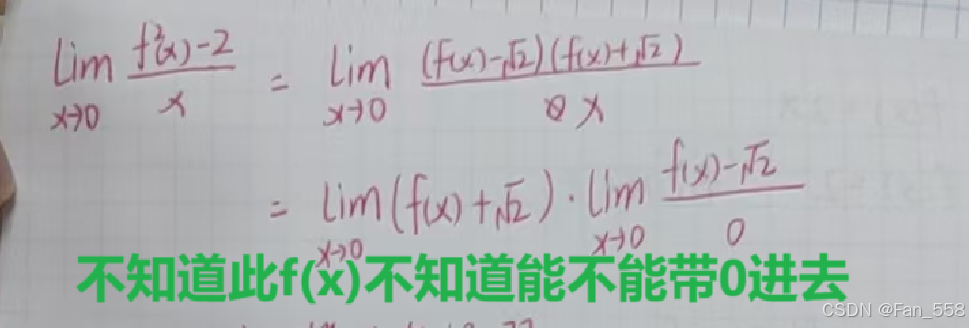 lim x→0 f²(x)-2 / x = lim x→0 (f(x)-√2)(f(x)+√2) / x
= lim x→0 (f(x)+√2) · lim x→0 f(x)-√2 / 0
不知道此f(x)不知道能不能带0进去
CSDN @Fan_558